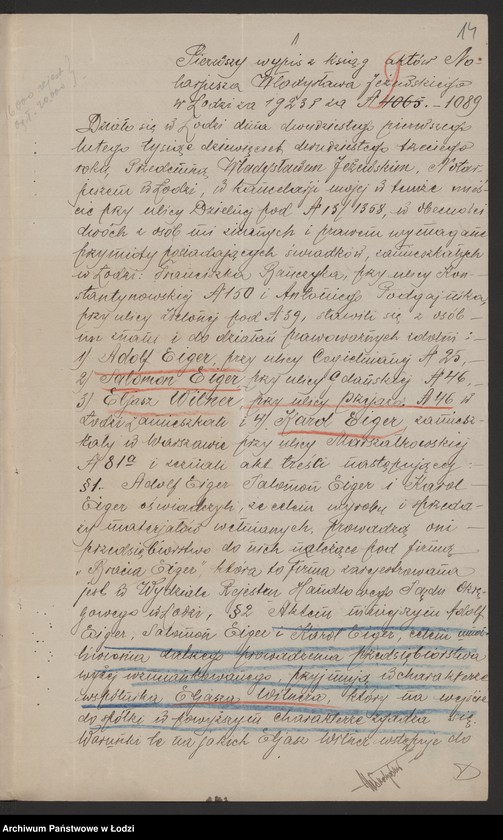 14
Pierwszy wypis z ksiąg aktów No-
tarjusza Władysława Jeżewskiego
w Łodzi za 1923 R za № 4065. — 1089
Działo się w Łodzi dnia dwudziestego pierwszego
lutego tysiąc dziewięćset dwudziestego trzeciego
roku, Przedemną, Władysławem Jeżewskim, Notar-
juszem w Łodzi, w kancelarji mojej w temże mieś-
cie przy ulicy Dzielnej pod № 15/1358, w obecności
dwóch z osób mi znanych i prawem wymagane
przymioty posiadających świadków, zamieszkałych
w Łodzi: Franciszka Bańczyka, przy ulicy Kon-
stantynowskiej № 150 i Antoniego Podgajnika,
przy ulicy Zielonej pod № 39, stawili się z osób
mi znani i do działań prawomocnych zdolni:
1) Adolf Eiger, przy ulicy Cegielnianej № 25, —
2) Salomon Eiger, przy ulicy Gdańskiej № 46, —
3) Eljasz Wilner, przy ulicy № 46 w
Łodzi zamieszkali i 4) Karol Eiger, zamiesz-
kały w Warszawie przy ulicy Marszałkowskiej
№ 81a i zeznali akt treści następującej:
§1. Adolf Eiger Salomon Eiger i Karol
Eiger oświadczyli, że celem wyrobu i sprzeda-
ży materjałów wełnianych, prowadzą oni —
przedsiębiorstwo do nich należące pod firmą
„Bracia Eiger", która to firma zarejestrowana
jest w Wydziale Rejestru Handlowego Sądu Okrę-
gowego w Łodzi, §2 Aktem niniejszym Adolf
Eiger, Salomon Eiger i Karol Eiger, celem umoż-
liwienia dalszego prowadzenia przedsiębiorstwa
wyżej wzmiankowanego, przyjmują w charakterze
wspólnika Eljasza Wilnera, który na wejście
do spółki w powyższym charakterze zgadza się.
Warunki te na jakich Eljasz Wilner wstępuje do
Archiwum Państwowe w Łodzi